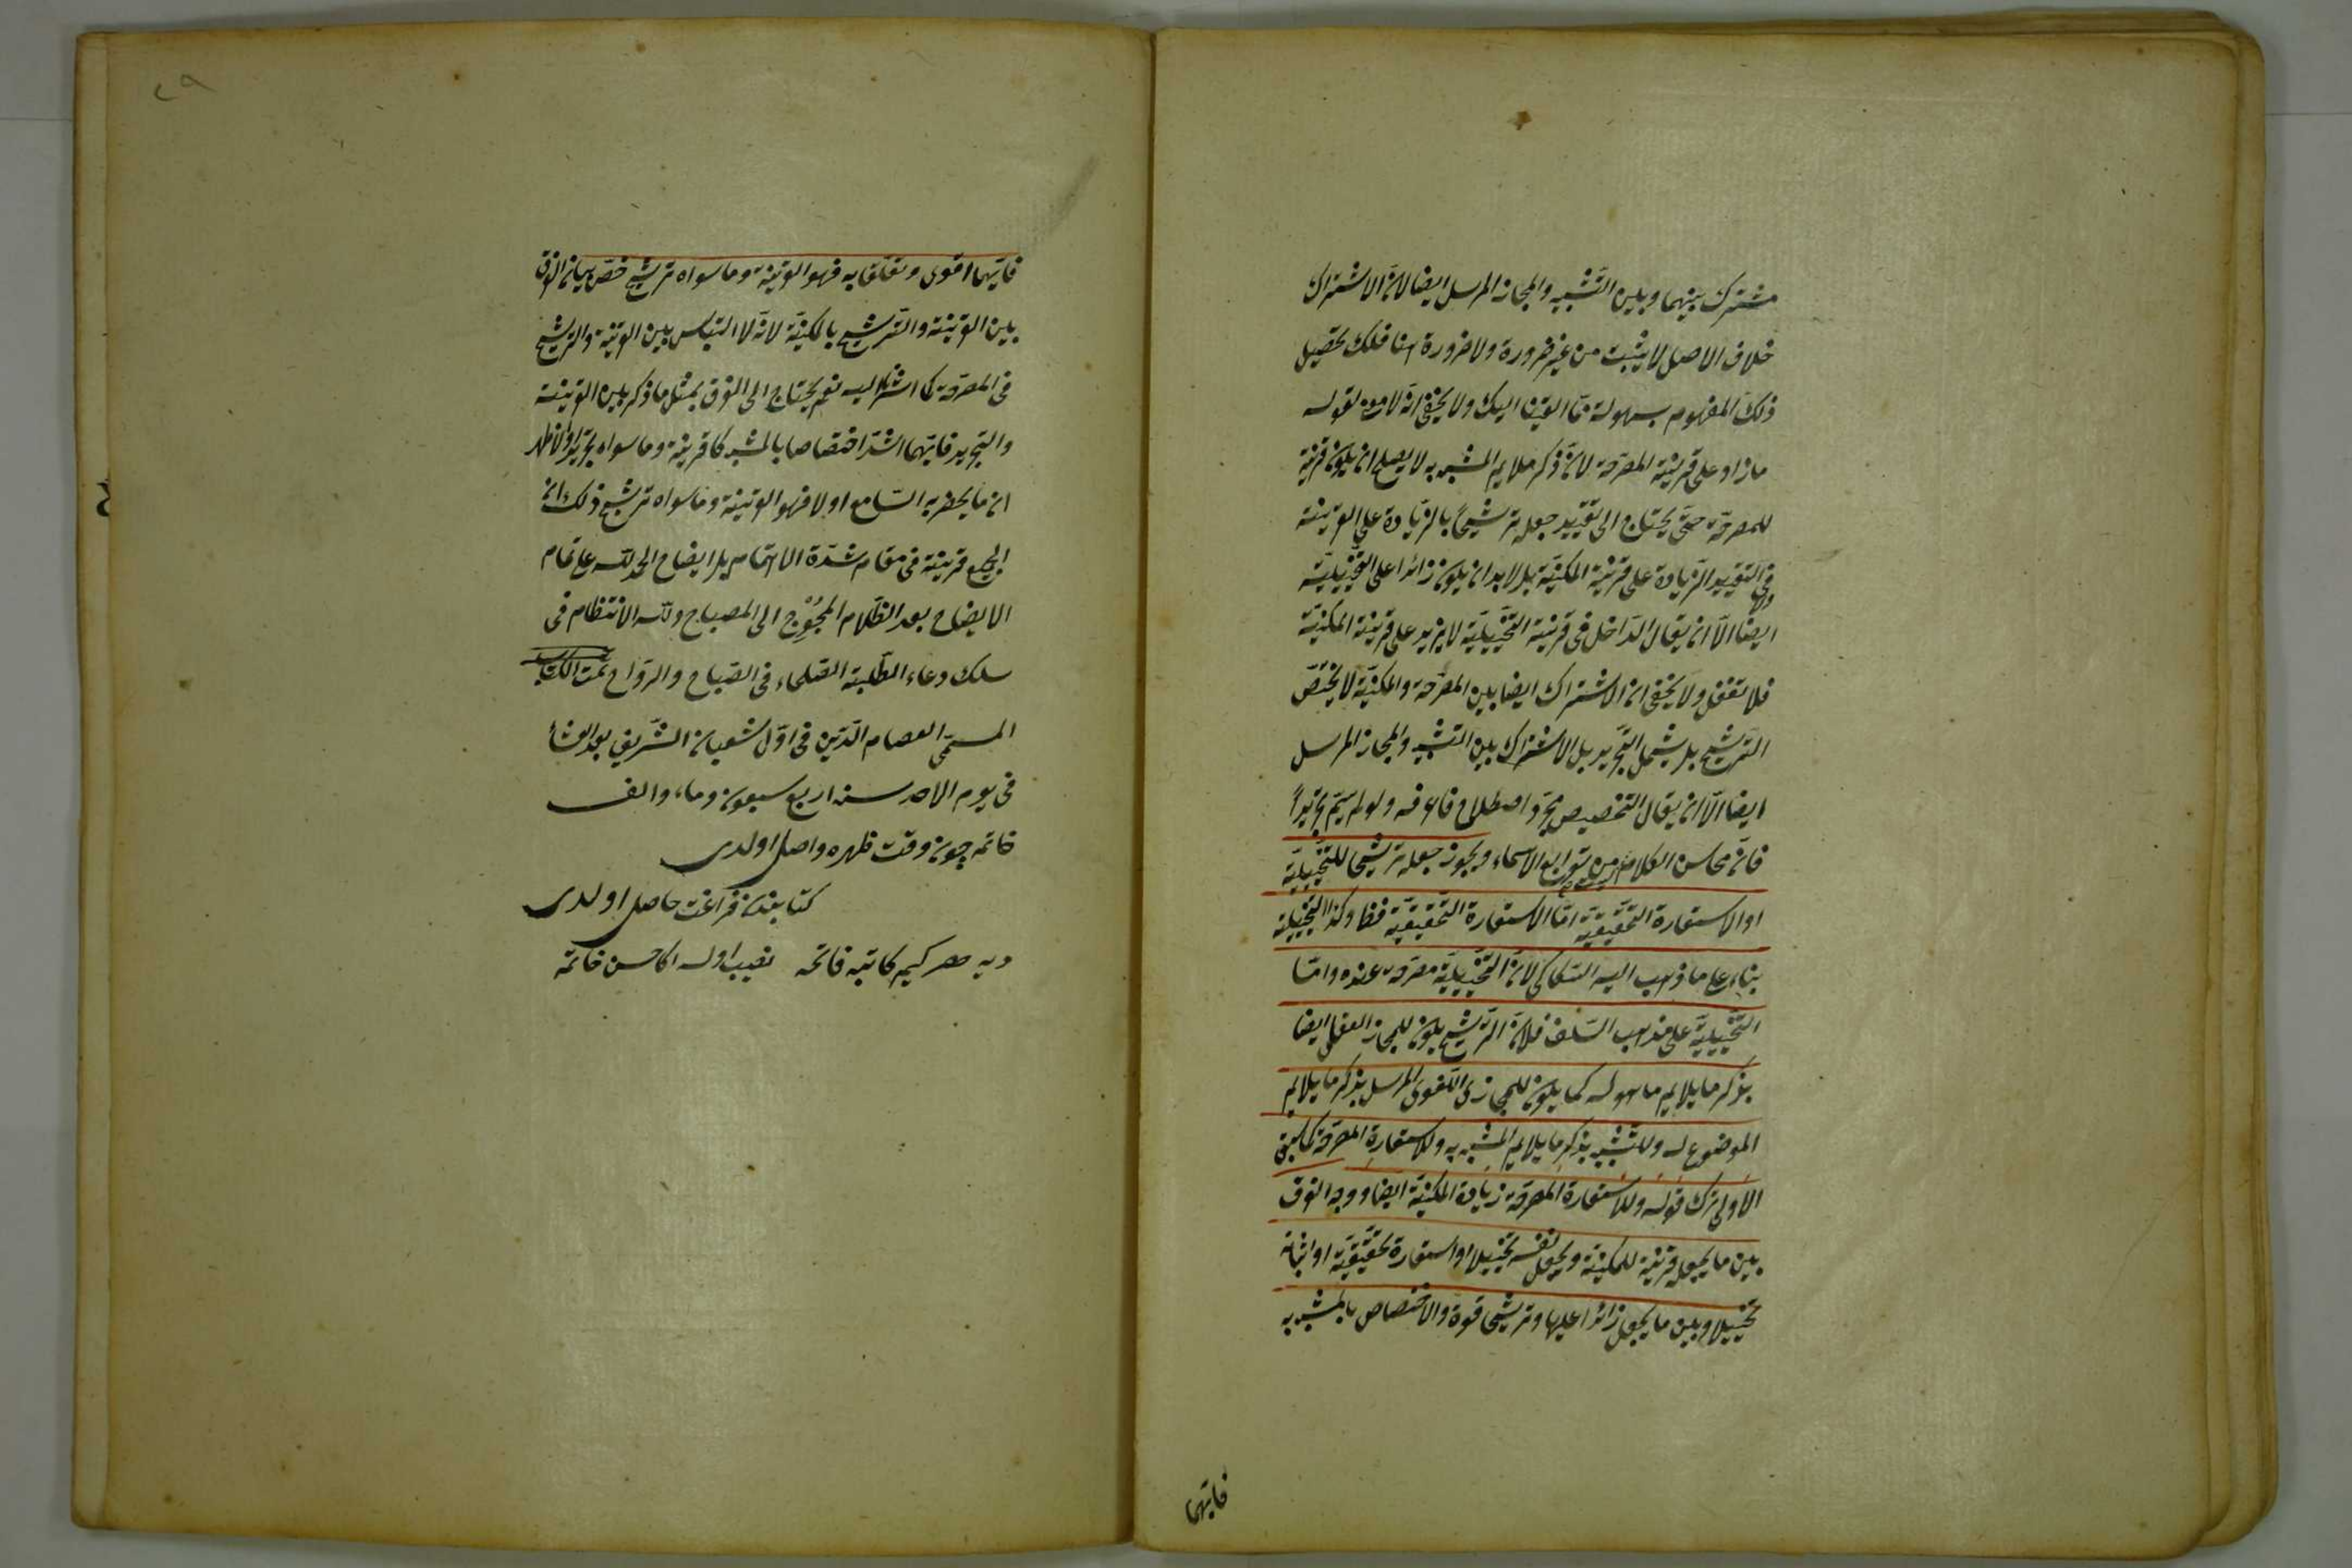 مشترك بينهما وبين التشبيه والمجاز المرسل ايضا لان الاشتراك
خلاف الاصل لا يثبت من غير ضرورة ولا ضرورة هنا فلك تحصيل
ذلك المفهوم بسهولة مما القينا اليك ولا يخفى انه لا لقوله
ما زاد على قرينة المصرحة لان ذكر ملايم المشبه به لا يصلح ان يكون قرينة
للمصرحة حتى يحتاج الى تقييد جعله ترشيحاً بالزيادة على القرينة
وفى التقييد الزيادة على قرينة المكنية بل لا بد ان يكون زائدا على التخييلية
ايضا الا ان يقال الداخل فى قرينة التخييلية لا يزيد على قرينة المكنية
فلا تغفل ولا يخفى ان الاشتراك ايضا بين المصرحة والمكنية لا يختص
الترشيح بل يشمل التجريد بل الاشتراك بين التشبيه والمجاز المرسل
ايضا الا ان يقال التخصيص مجرد اصطلاح فاعرفه ولو لم يسم تجريداً
فانه محاسن الكلام من توابع الاسماء ويجوز جعله ترشيحا للتخييلية
او الاستعارة التحقيقية اما الاستعارة التحقيقية فظ وكذا التخييلية
بناء على ما ذهب اليه السكاكى لان التخييلية مصرحة عنده واما
التخييلية على مذهب السلف فلان الترشيح يكون للمجاز العقلى ايضا
بذكر ما يلايم ما هو له كما يكون للمجازى اللغوى المرسل بذكر ما يلايم
الموضوع له وللتشبيه بذكر ما يلايم المشبه به وللاستعارة المصرحة كما سبق
الاولى ترك قوله وللاستعارة المصرحة زيادة المكنية ايضا ووجه الفرق
بين ما يجعل قرينة للمكنية ويجعل نفسه تخييلا او استعارة تحقيقية او اثباته
تخييلا وبين ما يجعل زائدا عليها وترشيحا قوة والاختصاص بالمشبه به
فايهما
٢٩
فايهما اقوى وتعلقا به فهو القرينة وما سواه ترشيح خص بيان الفرق
بين القرينة والترشيح بالمكنية لانه لا التباس بين القرينة والترشيح
فى المصرحة كما اشرنا اليه نعم يحتاج الى الفرق بمثل ما ذكر بين القرينة
والتجريد فايهما اشد اختصاصا بالمشبه كان قرينة وما سواه تجريدا والاظهر
ان ما يحضر به السامع اولا فهو القرينة وما سواه ترشيح ذلك ان
الجميع قرينة فى مقام شدة الاهتمام بالايضاح الحمد لله على تمام
الايضاح بعد الظلام المحوج الى المصباح ولله الانتظام فى
سلك دعاء الطلبة الصلحاء فى الصباح والرواح تمت الكتاب
المسمى العصام الدين فى اول شعبان الشريف بعد العشاء
فى يوم الاحد سنه اربع سبعون وماء والف
خاتمه چون وقت ظهره واصل اولدى
كتابندن فراغت حاصل اولدى
ديه هر كيم كاتبه فاتحه نصيب اوله اكا حسن خاتمه